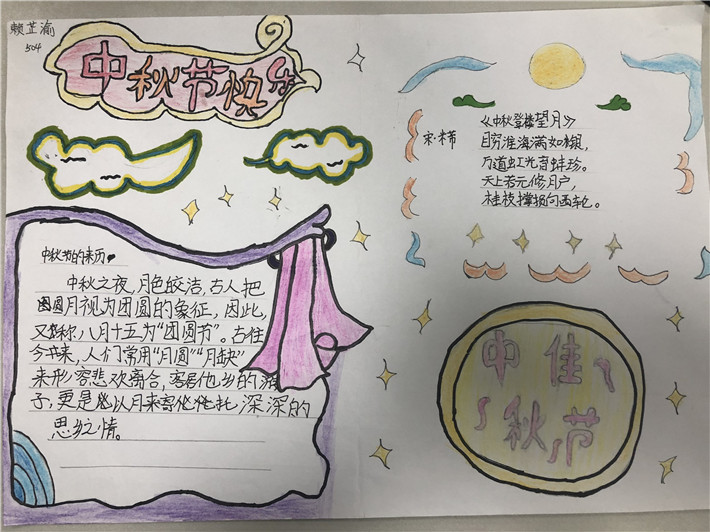 赖芷渝
504
中秋节快乐
中秋节的来历
中秋之夜,月色皎洁,古人把
圆月视为团圆的象征,因此,
又称八月十五为“团圆节”。古往
今来,人们常用“月圆”“月缺”
来形容悲欢离合,客居他乡的游
子,更是以月来寄托 深深的
思乡之情。
《中秋登楼望月》
宋·米芾
目穷淮海满如银,
万道虹光育蚌珍。
天上若无修月户,
桂枝撑损向西轮。
中秋佳节